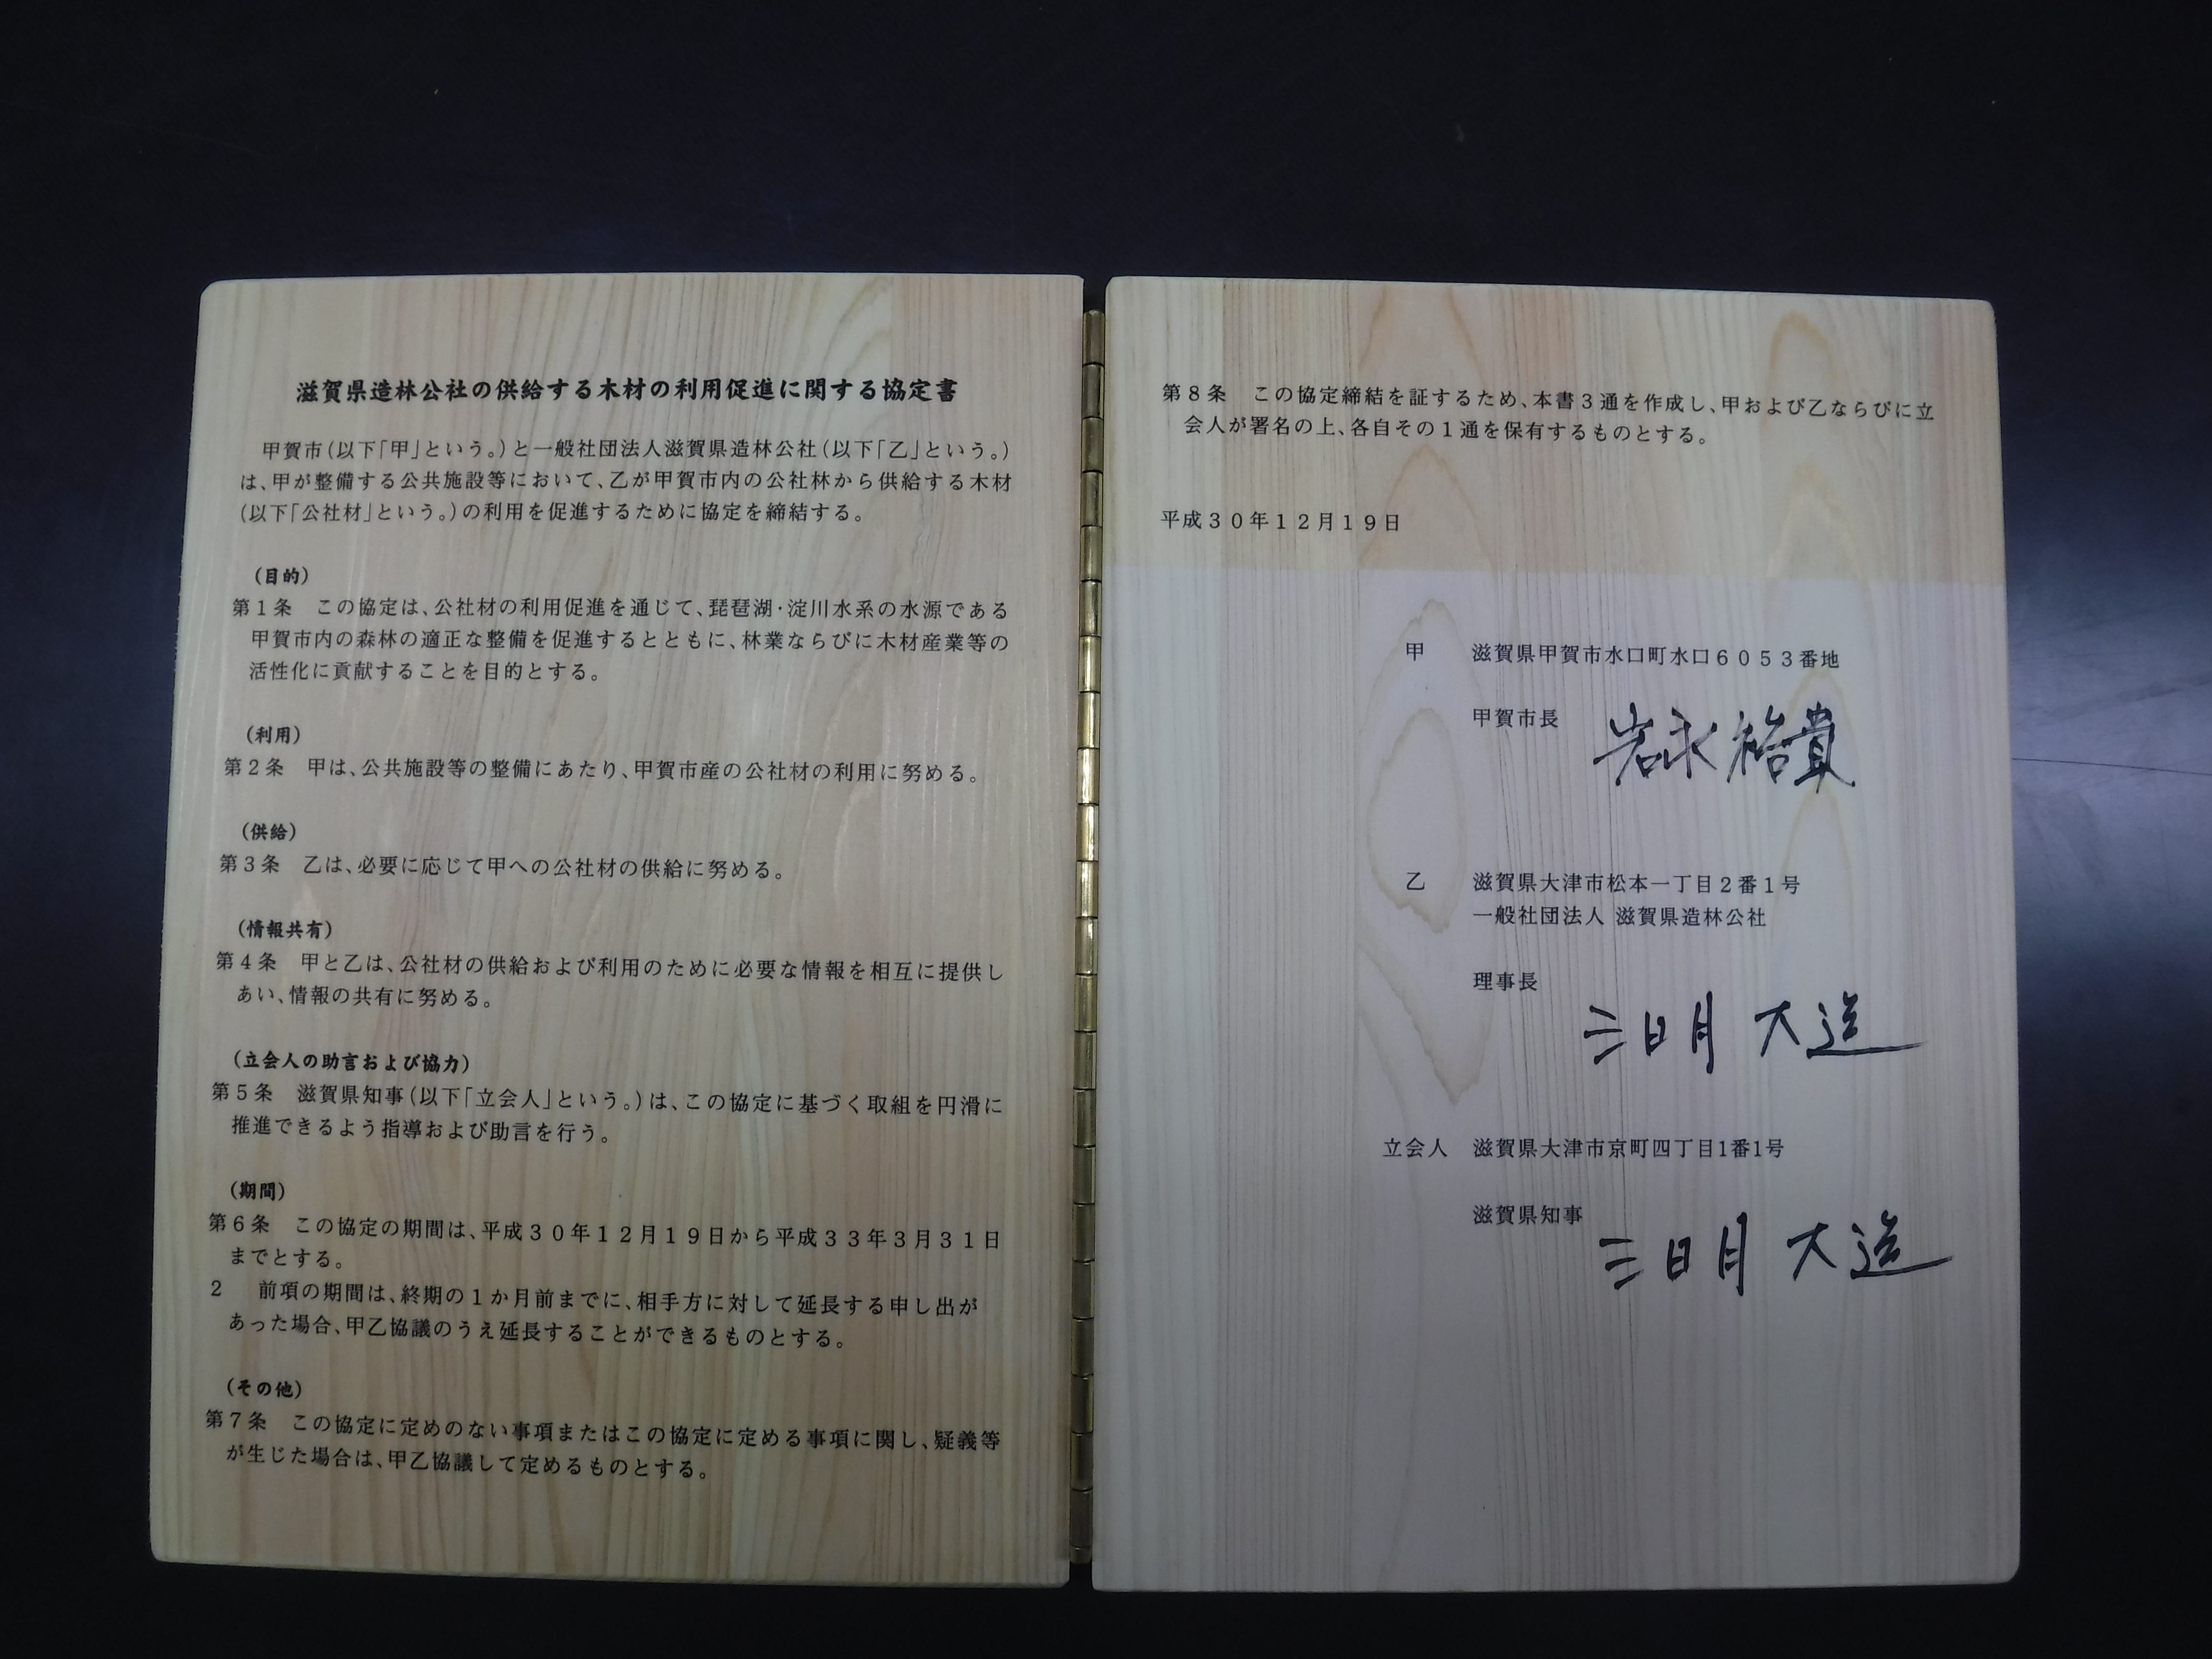 滋賀県造林公社の供給する木材の利用促進に関する協定書
甲賀市(以下「甲」という。)と一般社団法人滋賀県造林公社(以下「乙」という。)
は、甲が整備する公共施設等において、乙が甲賀市内の公社林から供給する木材
(以下「公社材」という。)の利用を促進するために協定を締結する。
(目的)
第1条　この協定は、公社材の利用促進を通じて、琵琶湖・淀川水系の水源である
甲賀市内の森林の適正な整備を促進するとともに、林業ならびに木材産業等の
活性化に貢献することを目的とする。
(利用)
第2条　甲は、公共施設等の整備にあたり、甲賀市産の公社材の利用に努める。
(供給)
第3条　乙は、必要に応じて甲への公社材の供給に努める。
(情報共有)
第4条　甲と乙は、公社材の供給および利用のために必要な情報を相互に提供し
あい、情報の共有に努める。
(立会人の助言および協力)
第5条　滋賀県知事(以下「立会人」という。)は、この協定に基づく取組を円滑に
推進できるよう指導および助言を行う。
(期間)
第6条　この協定の期間は、平成30年12月19日から平成33年3月31日
までとする。
2　前項の期間は、終期の1か月前までに、相手方に対して延長する申し出が
あった場合、甲乙協議のうえ延長することができるものとする。
(その他)
第7条　この協定に定めのない事項またはこの協定に定める事項に関し、疑義等
が生じた場合は、甲乙協議して定めるものとする。
第8条　この協定締結を証するため、本書3通を作成し、甲および乙ならびに立
会人が署名の上、各自その1通を保有するものとする。
平成30年12月19日
甲　滋賀県甲賀市水口町水口6053番地
甲賀市長　岩永裕貴
乙　滋賀県大津市松本一丁目2番1号
一般社団法人 滋賀県造林公社
理事長
三日月 大造
立会人　滋賀県大津市京町四丁目1番1号
滋賀県知事　三日月 大造